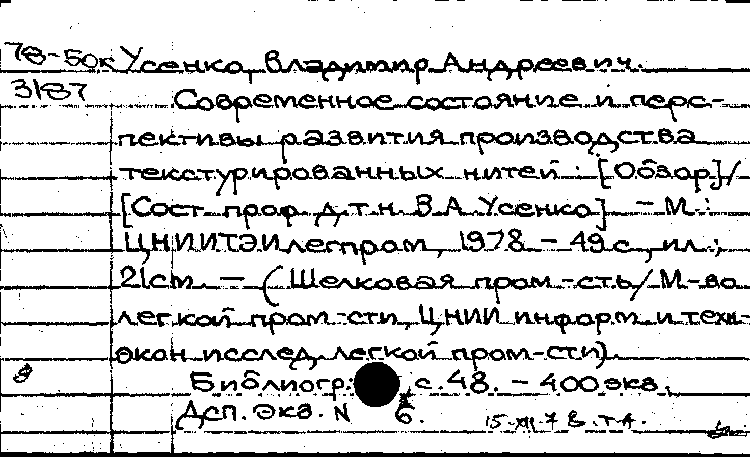 78-50к Усенко, Владимир Андреевич.
3187 Современное состояние и перс-
пективы развития производства
текстурированных нитей : [Обзор] /
[Сост. проф. д.т.н. В.А. Усенко]. - М. :
ЦНИИТЭИлегпром, 1978. - 49 с., ил.;
21 см. - (Шелковая пром-сть / М-во
легкой пром-сти, ЦНИИ информ. и техн-
экон. исслед. легкой пром-сти).
Библиогр.: с. 48. - 400 экз.
Дсп. Экз. N 6. 15.XII.78. Т-А.